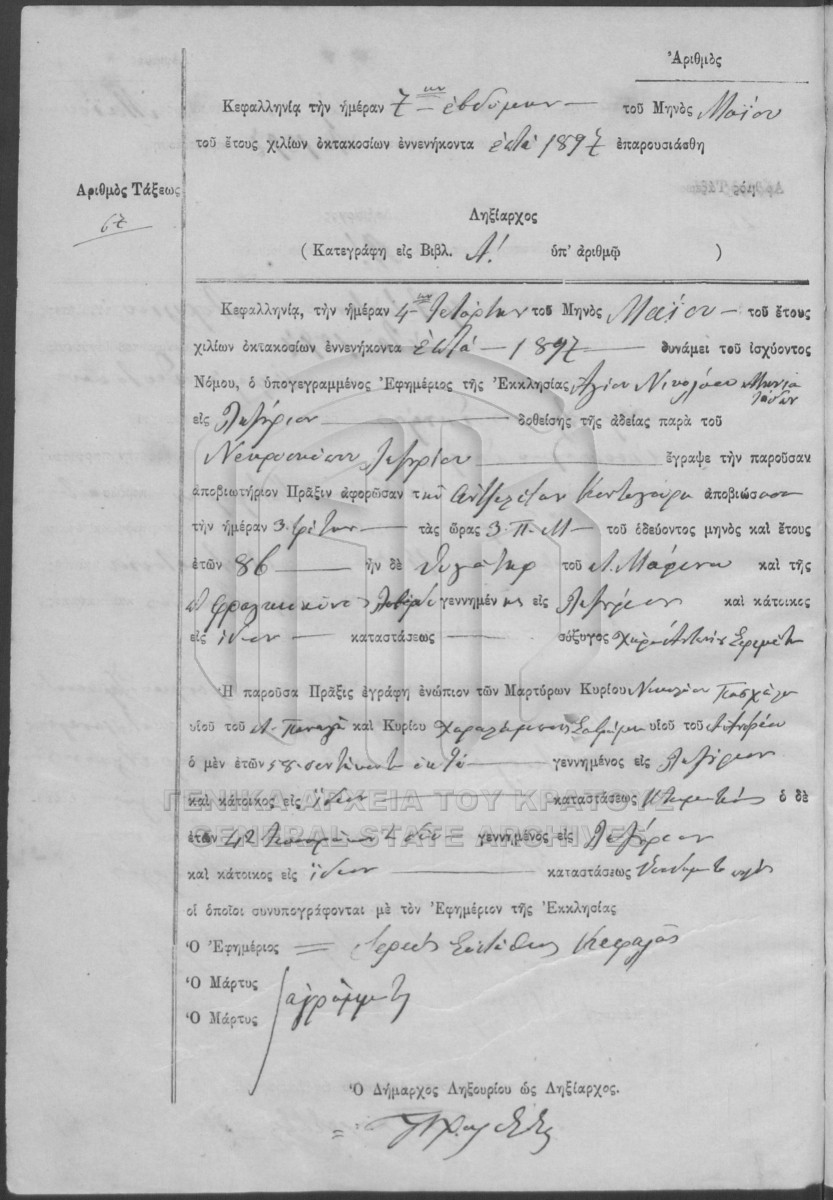 Ἀριθμὸς
Κεφαλληνίᾳ τὴν ἡμέραν 7 ην ἑβδόμην τοῦ Μηνὸς Μαΐου
τοῦ ἔτους χιλίων ὀκτακοσίων ἐννενήκοντα ἑπτὰ 1897 ἐπαρουσιάσθη
Ἀριθμὸς Τάξεως
67
Ληξίαρχος
( Κατεγράφη εἰς Βιβλ. Α! ὑπ' ἀριθμῷ )
Κεφαλληνίᾳ, τὴν ἡμέραν 4 τετάρτην τοῦ Μηνὸς Μαΐου τοῦ ἔτους
χιλίων ὀκτακοσίων ἐννενήκοντα ἑπτὰ 1897 δυνάμει τοῦ ἰσχύοντος
Νόμου, ὁ ὑπογεγραμμένος Ἐφημέριος τῆς Ἐκκλησίας Ἁγίου Νικολάου
εἰς Ληξούριον δοθείσης τῆς ἀδείας παρὰ τοῦ
Ληξουρίου ἔγραψε τὴν παροῦσαν
ἀποβιωτήριον Πρᾶξιν ἀφορῶσαν τὴν ἀποβιώσασα
τὴν ἡμέραν 3 τρίτην τὰς ὥρας 3 Π. Μ τοῦ ὁδεύοντος μηνὸς καὶ ἔτους
ἐτῶν 86 ἦν δὲ θυγάτηρ τοῦ καὶ τῆς
γεννημένη εἰς Ληξούριον καὶ κάτοικος
εἰς ἴδιον καταστάσεως σύζυγος
Ἡ παροῦσα Πρᾶξις ἐγράφη ἐνώπιον τῶν Μαρτύρων Κυρίου Νικολάου
υἱοῦ τοῦ καὶ Κυρίου Χαραλάμπους υἱοῦ τοῦ
ὁ μὲν ἐτῶν 58 πεντήκοντα ὀκτὼ γεννημένος εἰς Ληξούριον
καὶ κάτοικος εἰς ἴδιον καταστάσεως Κτηματίας ὁ δὲ
ΓΕΝΙΚΑ ΑΡΧΕΙΑ ΤΟΥ ΚΡΑΤΟΥΣ
ἐτῶν 42 τεσσαράκοντα δύο γεννημένος εἰς Ληξούριον
GENERAL STATE ARCHIVES
καὶ κάτοικος εἰς ἴδιον καταστάσεως
οἱ ὁποῖοι συνυπογράφονται μὲ τὸν Ἐφημέριον τῆς Ἐκκλησίας
Ὁ Ἐφημέριος Ἱερεὺς Κεφαλᾶς
Ὁ Μάρτυς
ἀγράμματοι
Ὁ Μάρτυς
Ὁ Δήμαρχος Ληξουρίου ὡς Ληξίαρχος.